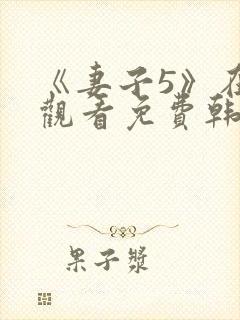 《妻子5》在
觀看免費韩
果子漿